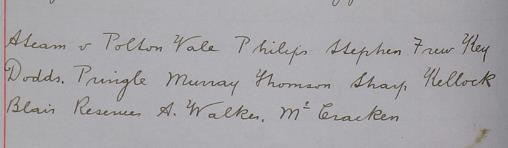 Ateam v Polton Vale Philips Stephen Frew Key
Dodds. Pringle Murray Thomson Sharp Kellock
Blair Reserves A. Walker. Mc Cracken